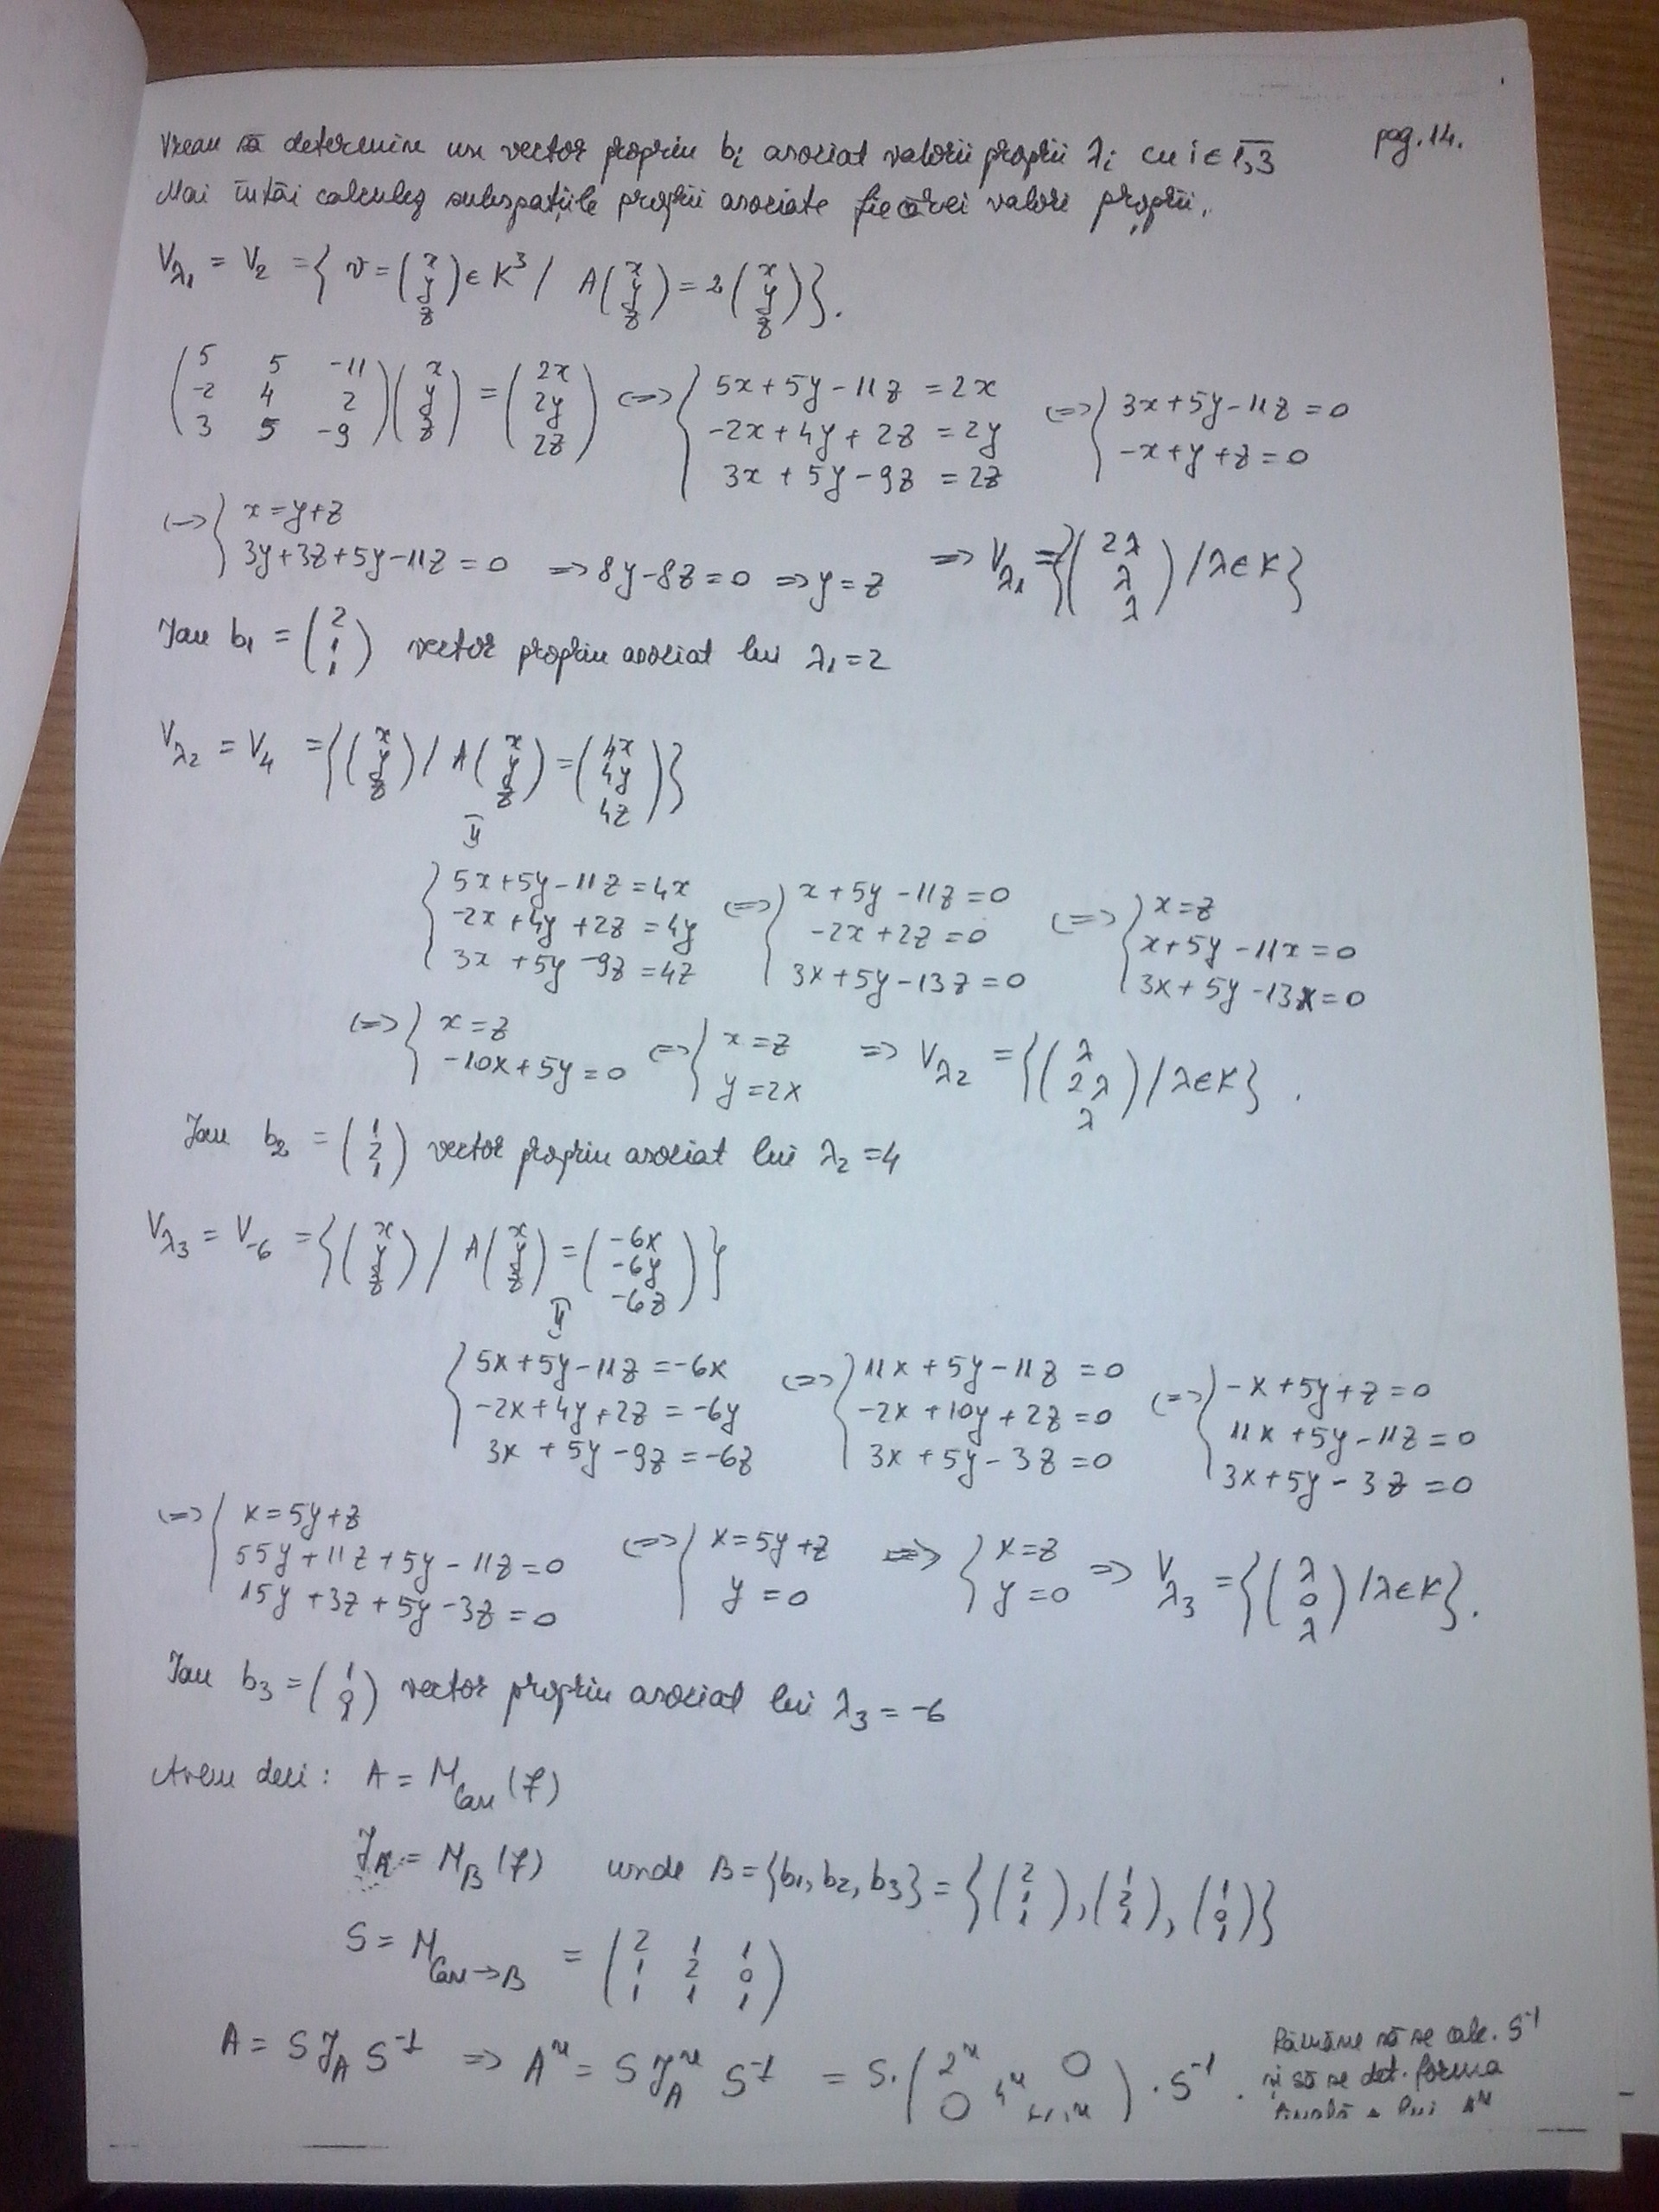 pag. 14.
Vreau să determin un vector propriu bᵢ asociat valorii proprii λᵢ cu i ∈ 1,3
Mai întâi calculez subspațiile proprii asociate fiecărei valori proprii.
V_λ₁ = V₂ = { v = (x y z) ∈ K³ / A (x y z) = 2 (x y z) }.
(5 5 -11 ; -2 4 2 ; 3 5 -9) (x y z) = (2x 2y 2z) <=> { 5x+5y-11z = 2x ; -2x+4y+2z = 2y ; 3x+5y-9z = 2z <=> { 3x+5y-11z = 0 ; -x+y+z = 0
<=> { x = y+z ; 3y+3z+5y-11z = 0 => 8y-8z = 0 => y = z => V_λ₁ = { (2λ λ λ) / λ ∈ K }
Iau b₁ = (2 1 1) vector propriu asociat lui λ₁ = 2
V_λ₂ = V₄ = { (x y z) / A (x y z) = (4x 4y 4z) }
{ 5x+5y-11z = 4x ; -2x+4y+2z = 4y ; 3x+5y-9z = 4z <=> { x+5y-11z = 0 ; -2x+2z = 0 ; 3x+5y-13z = 0 <=> { x = z ; x+5y-11x = 0 ; 3x+5y-13x = 0
<=> { x = z ; -10x+5y = 0 <=> { x = z ; y = 2x => V_λ₂ = { (λ 2λ λ) / λ ∈ K }.
Iau b₂ = (1 2 1) vector propriu asociat lui λ₂ = 4
V_λ₃ = V₋₆ = { (x y z) / A (x y z) = (-6x -6y -6z) }
{ 5x+5y-11z = -6x ; -2x+4y+2z = -6y ; 3x+5y-9z = -6z <=> { 11x+5y-11z = 0 ; -2x+10y+2z = 0 ; 3x+5y-3z = 0 <=> { -x+5y+z = 0 ; 11x+5y-11z = 0 ; 3x+5y-3z = 0
<=> { x = 5y+z ; 55y+11z+5y-11z = 0 ; 15y+3z+5y-3z = 0 <=> { x = 5y+z ; y = 0 => { x = z ; y = 0 => V_λ₃ = { (λ 0 λ) / λ ∈ K }.
Iau b₃ = (1 0 1) vector propriu asociat lui λ₃ = -6
Avem deci: A = M_Can (f)
J_A = M_B (f) unde B = {b₁, b₂, b₃} = { (2 1 1), (1 2 1), (1 0 1) }
S = M_Can→B = (2 1 1 ; 1 2 0 ; 1 1 1)
A = S J_A S⁻¹ => Aⁿ = S J_Aⁿ S⁻¹ = S · (2ⁿ 0 4ⁿ 0) · S⁻¹.
Rămâne să se calc. S⁻¹
și să se det. forma
finală a lui Aⁿ